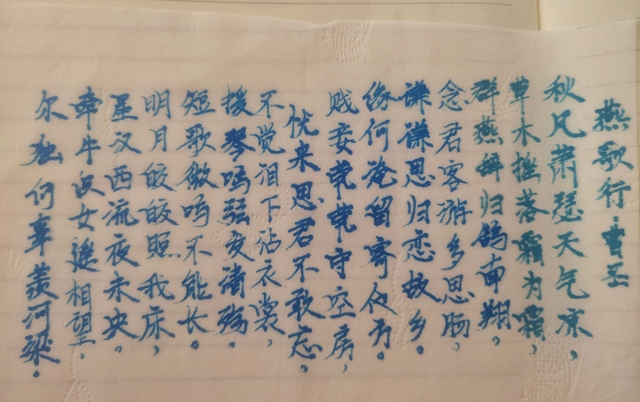 燕歌行·曹丕
秋风萧瑟天气凉，
草木摧落霜为霜，
群燕辞归鹄南翔。
念君客游多思肠，
谦谦思归恋故乡。
何淹留寄他方。
贱妾茕茕守空房，
忧来思君不敢忘，
不觉泪下沾衣裳，
援琴鸣弦发清。
短歌微不能长。
明月皎皎照我床，
星汉西流夜未央。
牵牛织女遥相望，
尔独何辜河梁。